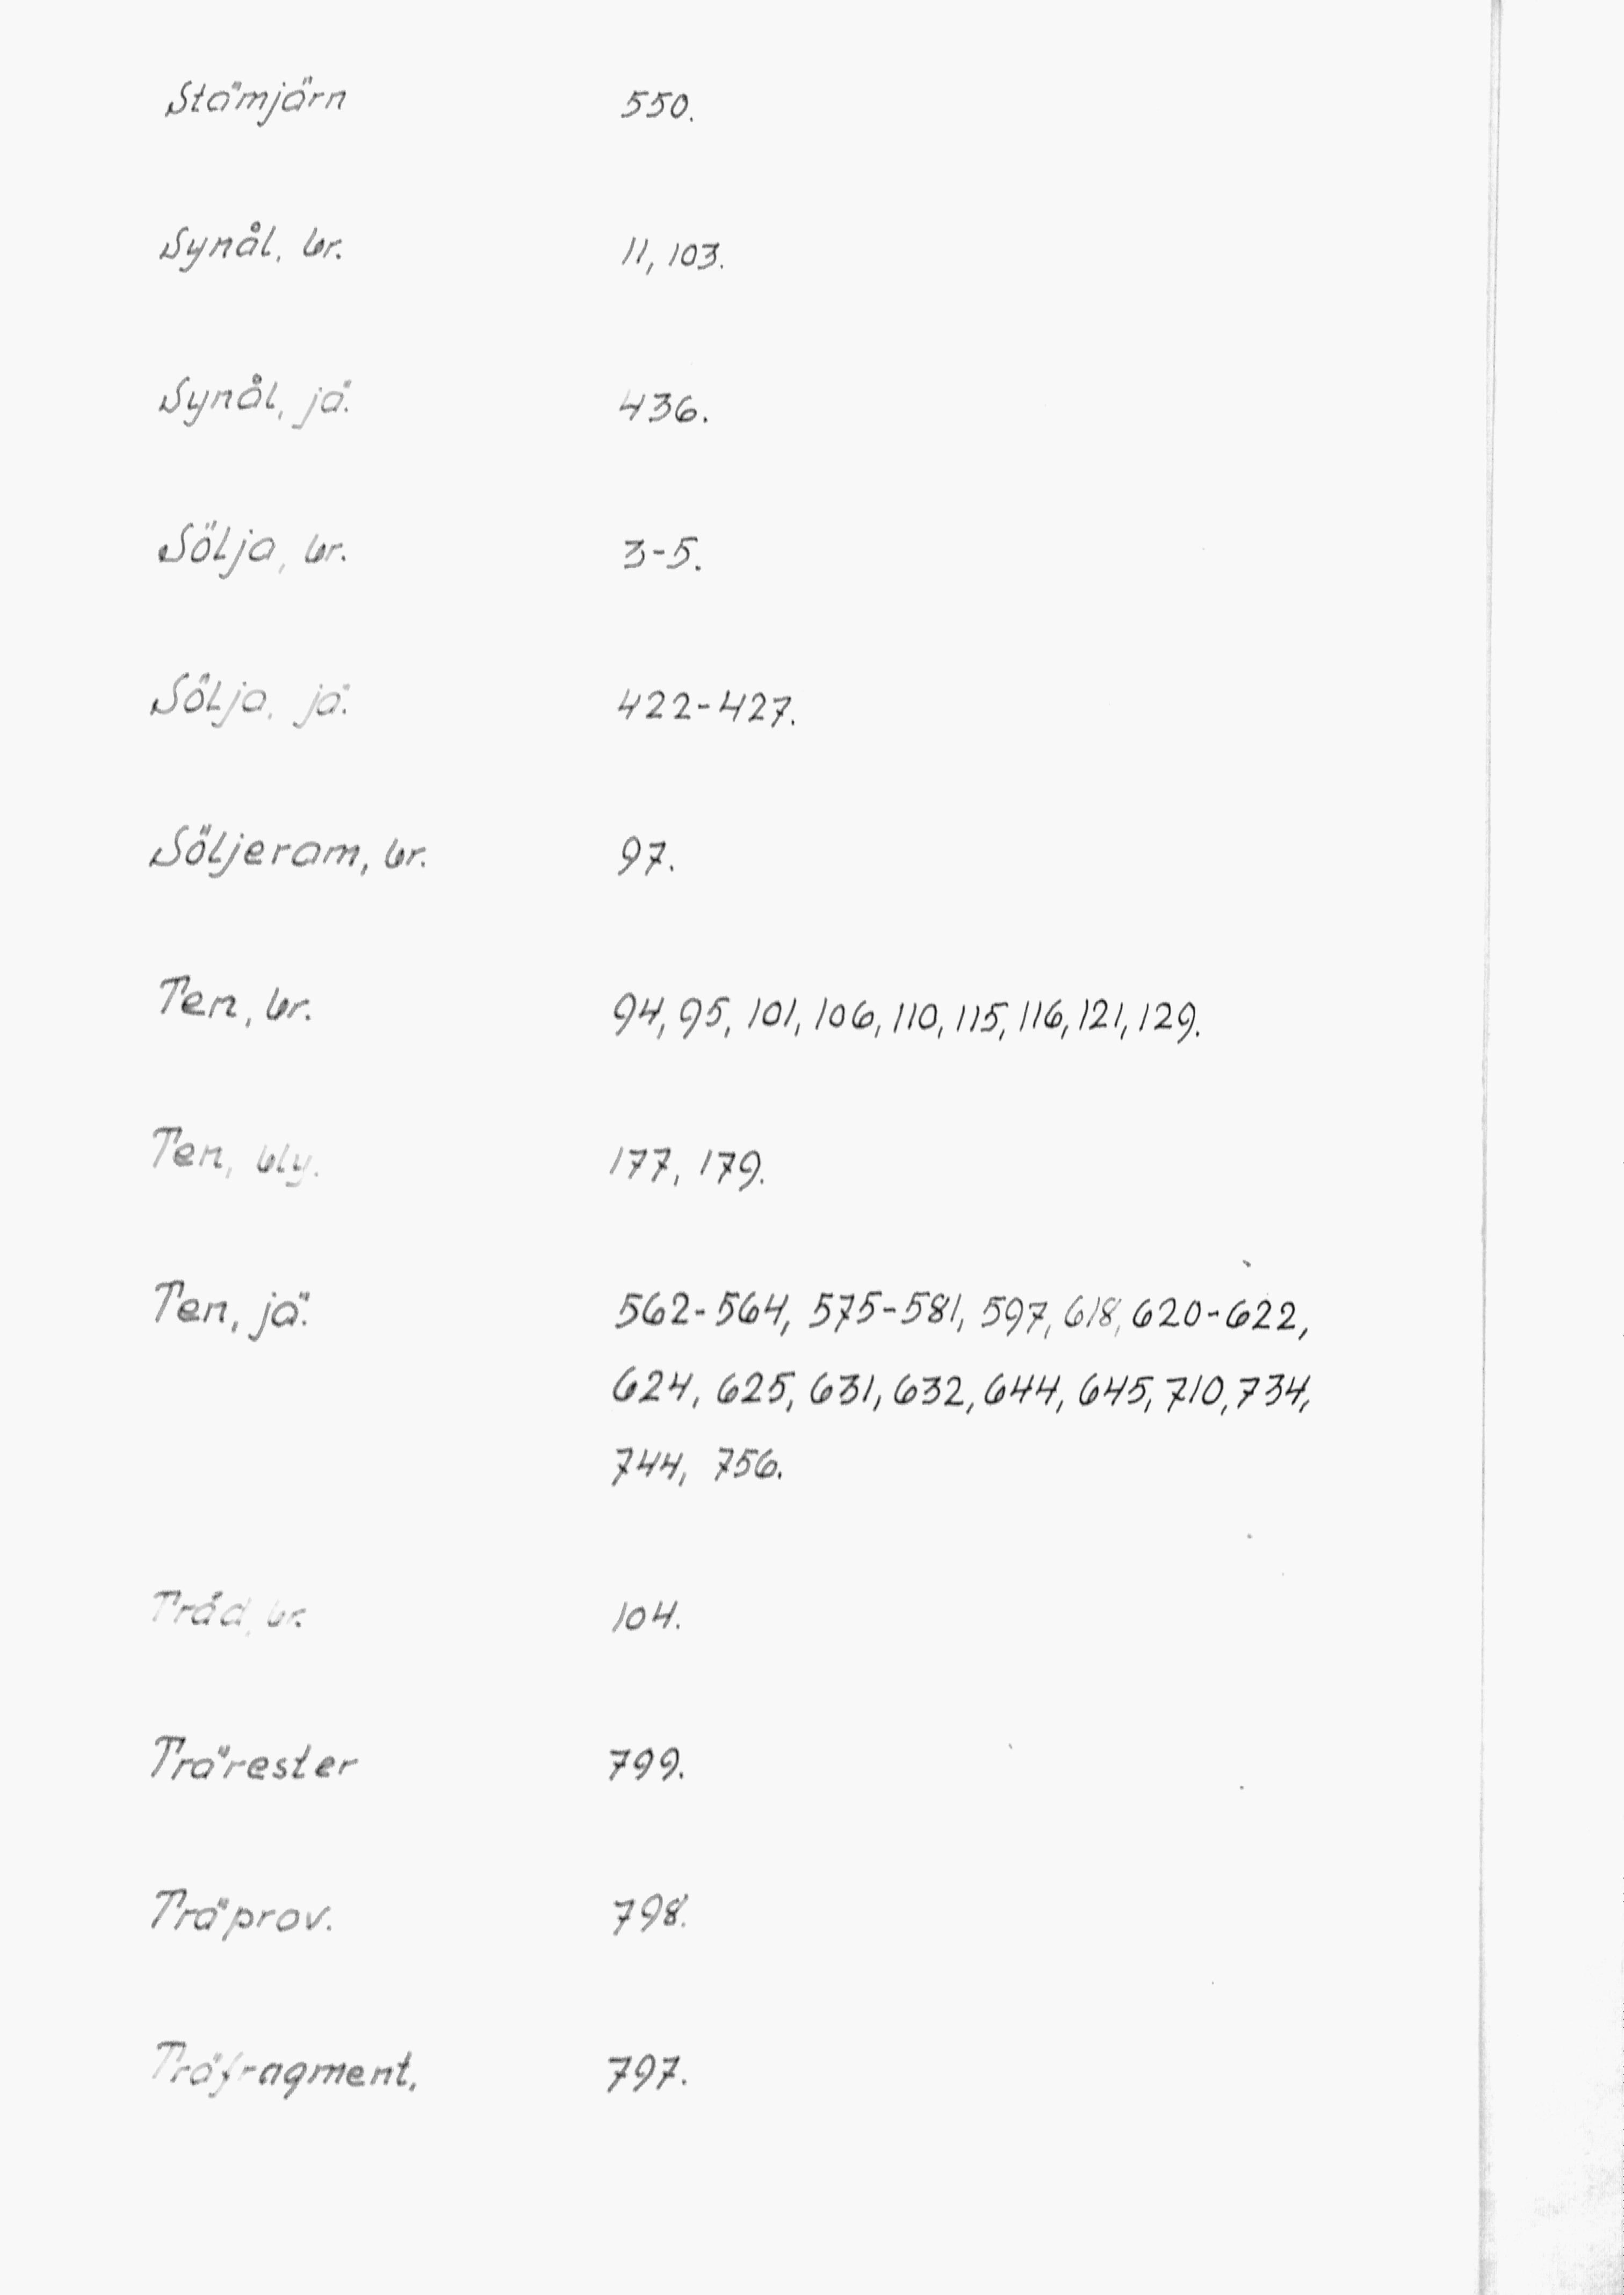 Stämjärn 550.
Synål, br. 11, 103.
Synål, jä. 436.
Sölja, br. 3-5.
Sölja, jä. 422-427.
Söljeram, br. 97.
Ten, br. 94, 95, 101, 106, 110, 115, 116, 121, 129.
Ten, bly. 177, 179.
Ten, jä. 562-564, 575-581, 597, 618, 620-622,
624, 625, 631, 632, 644, 645, 710, 734,
744, 756.
Tråd, br. 104.
Trärester 799.
Träprov. 798.
Träfragment. 797.